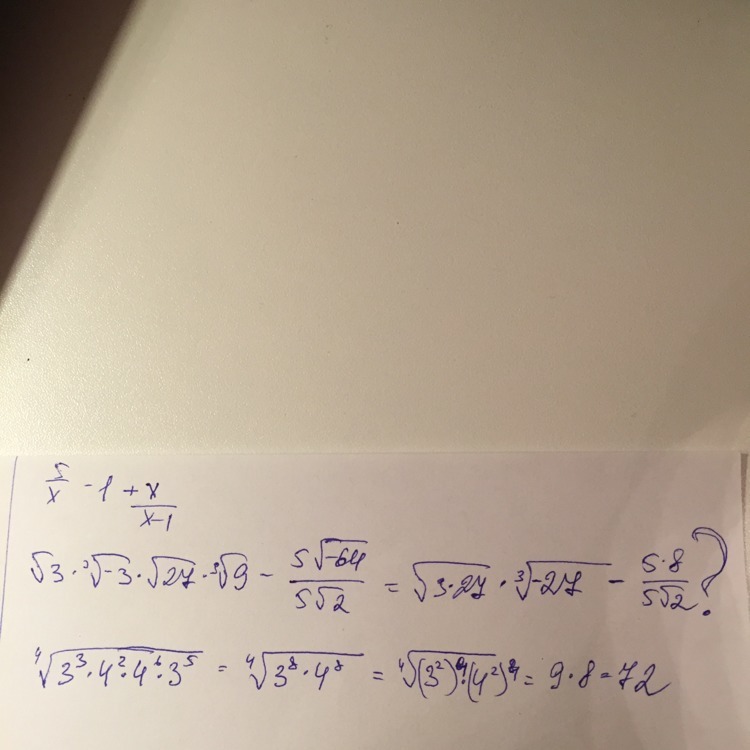 5/x - 1 + x/(x-1)
√3 · ³√-3 · √27 · ³√9 - 5√-64 / 5√2 = √3·27 · ³√-27 - 5·8 / 5√2 ?
⁴√3³·4²·4⁶·3⁵ = ⁴√3⁸·4⁸ = ⁴√(3²)⁴·(4²)⁴ = 9·8=72